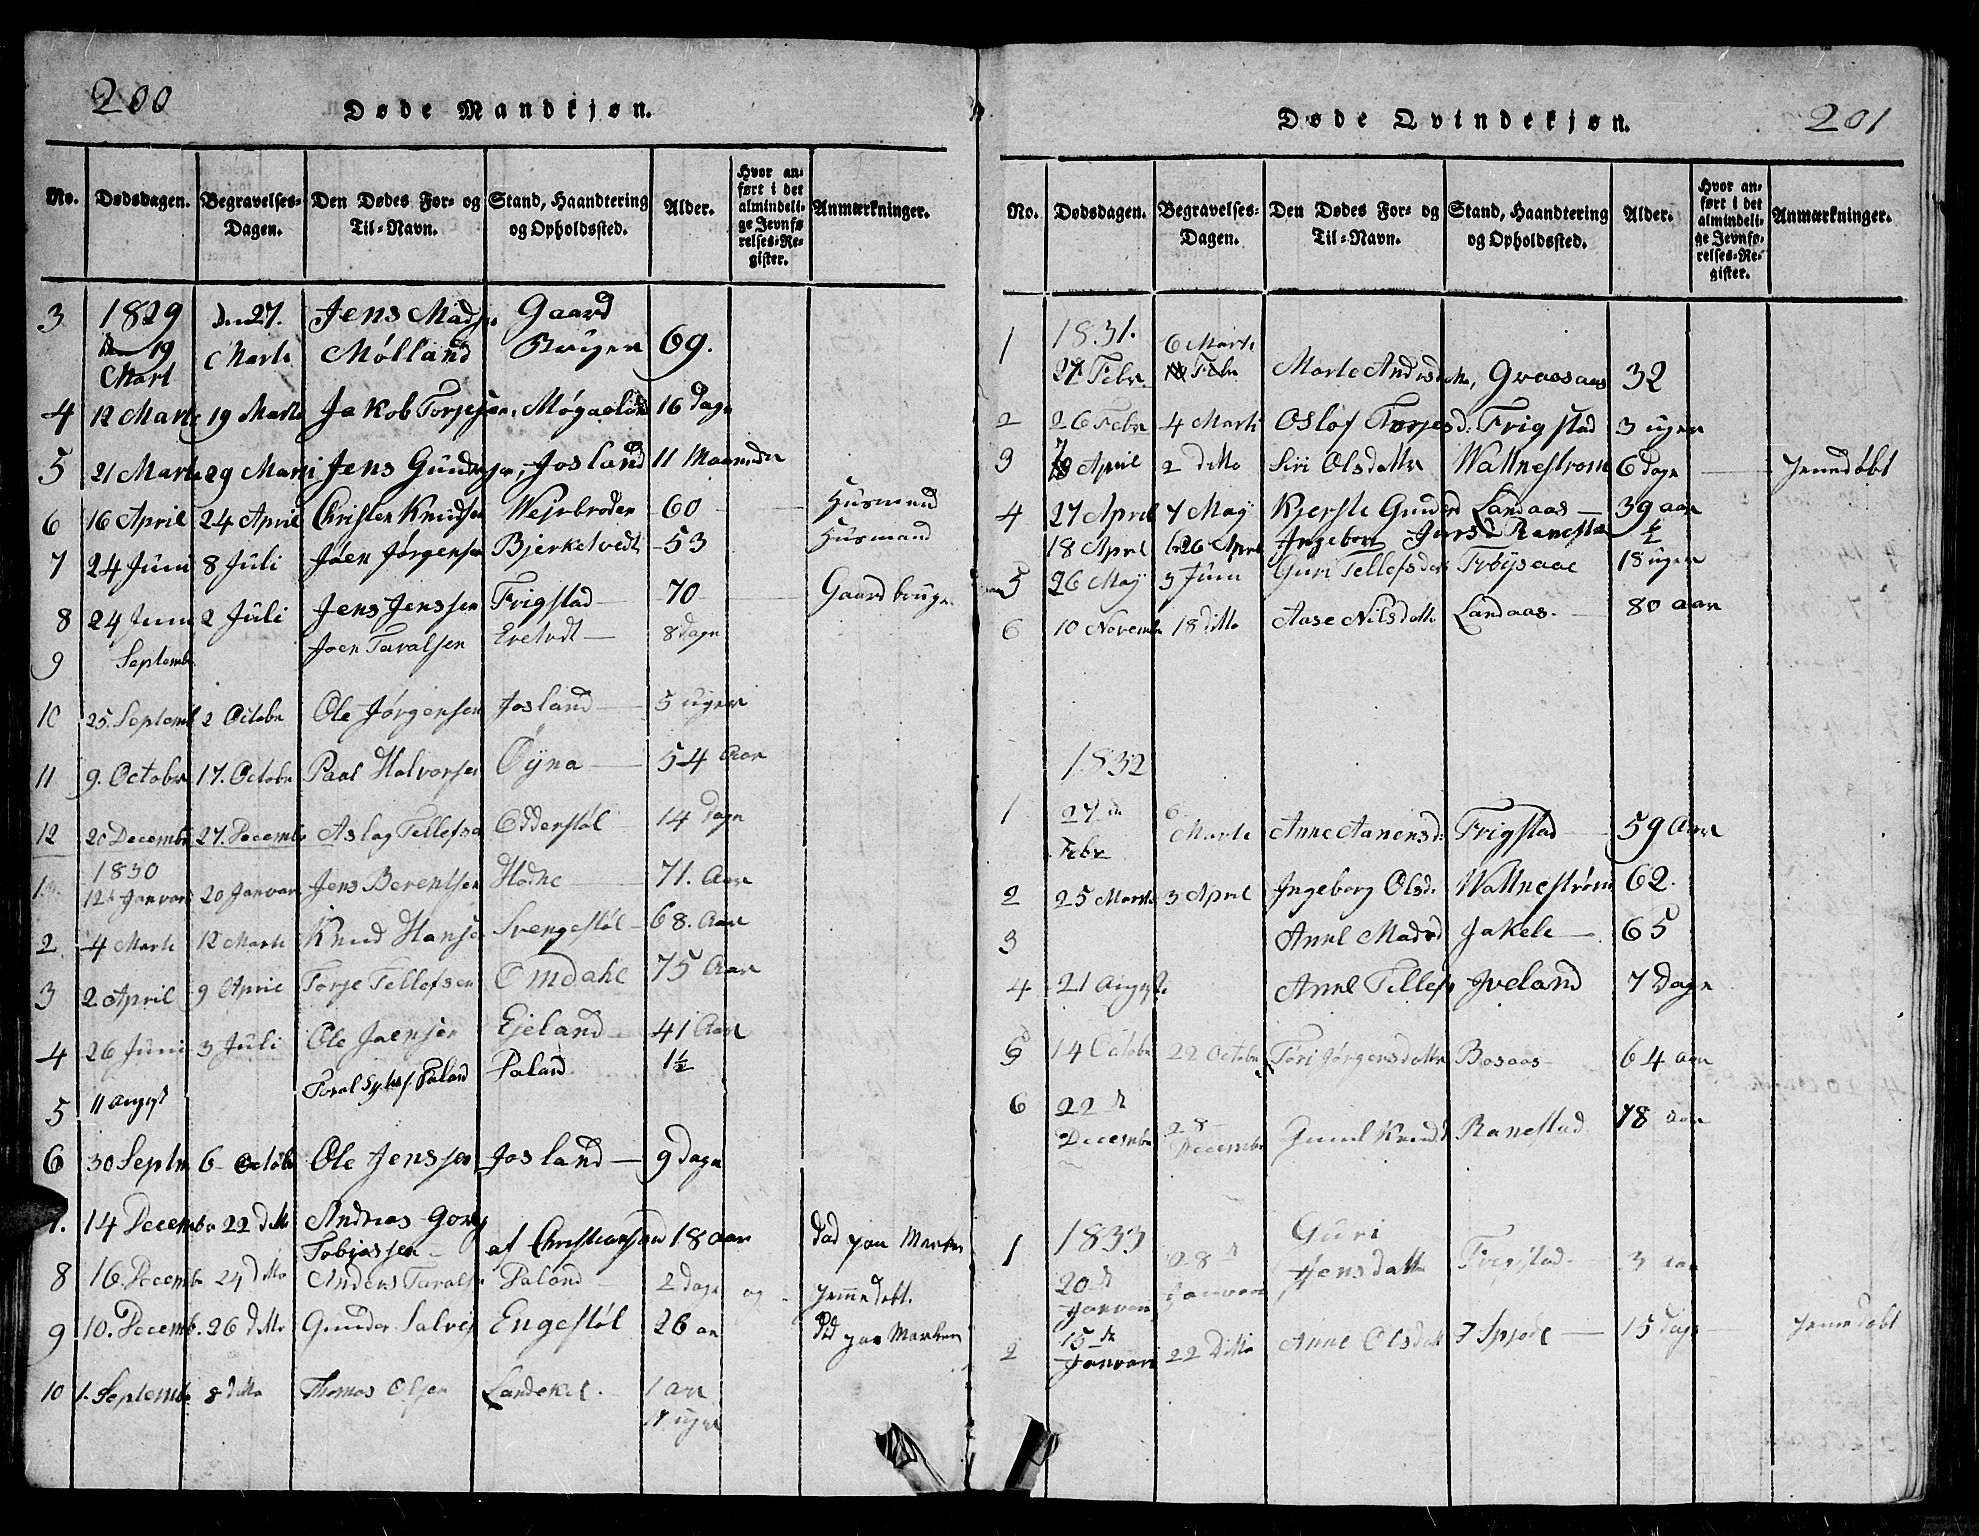 200
Døde Mandkjøn.
No. Dødsdagen. Begravelses-Dagen. Den Dødes For- og Til-Navn. Stand, Haandtering og Opholdssted. Alder. Hvor anført i det almindelige Jevnførelses-Register. Anmærkninger.
3 1829 19 Mart Den 27. Marti Jens Madsen Mølland Gaard Bruger 69.
4 12 Marti 19 Marti Jakob Torjesen, 16 Dage
5 21 Marti 29 Marti Jens Gundersen, Josland 11 Maaneder
6 16 April 24 April Christen Knudsen 60 Husmand
7 24 Juni 8 Juli Joen Jørgensen Bjerketvedt 53 Husmand
8 24 Juni 2 Juli Jens Jenssen Frigstad 70 Gaardbruger
9 Septembr Joen Taralsen Evetvdt 8 dage
10 25. Septembr 2 Octobr Ole Jørgensen Josland 5 uger
11 9. Octobr 17. Octobr Paal Halvorsen Øyna 54 Aar
12 20 Decembr 27. Decembr Aslag Tellefsen Odderstøl 14 Dage
1830
1. 12te Januar 20 Januar Jens Berentsen Hodne 71. Aar
2 4 Marti 12 Marti Knud Hansen Svengestøl 68. Aar
3 2 April 9 April Torje Tellefsen Omdahl 75 Aar
4 26 Juni 3 Juli Ole Joensen Ejeland 41 Aar
5 11 August Toral Paland Paland 1½
6 30 Septbr 6 Octobr Ole Jenssen Josland 9 Dage
7. 14 Decembr 22 ditto Andreas Tobiassen af Christiansand 18 aar
8 16. Decembr 24 ditto Anders Taralsen Paland 2 dage og Jemmedøbt.
9 10. Decembr. 26 ditto Gunder Salves Engestøl 26 aar
10 1. Septembr 8 ditto Thomas Olsen Landekil. 1 aar uger
Døde Qvindekjøn.
201
No. Dødsdagen. Begravelses-Dagen. Den Dødes For- og Til-Navn. Stand, Haandtering og Opholdssted. Alder. Hvor anført i det almindelige Jevnførelses-Register. Anmærkninger.
1831.
1 27 Febr. 6 Marti Marte Andersdatter, Graasaas 32
2 26 Febr 4 Marti Osløf Torjesd. Frigstad 3 uger
3 April 2 ditto Siri Olsdatter Wattnestrøm 6 dage Jemmedøbt
4 27 April 7 Maj Kjersti Gunders Landaas 39 aar
18 April 26 April Ingebor Ranestad ½
5 26 Maj 3 Juni Guri Tellefsdatter Frøysaae 18 uger
6 10 Novembr 18 ditto Aase Nilsdatter Landaas. 80 aar
1832
1 27de Febr 6 Marti Anne Aanensd. Frigstad 59 Aar
2 25 Marti 3 April Ingeborg Olsd. Wattnestrøm 62.
3 Anne Madsd Jakele 65
4 21 August. Anne Tellefs Iveland 7 Dage
5 14 Octobr 22 Octobr Tøri Jørgensdatter Bosaas 64 aar
6 22de Decembr 28 Decembr Gunil Knuds Ranestad 78 aar
1833
1 20de Januar 28de Januar Guri Jensdatter Frigstad 3 aar
2 15de Januari 22 Ditto Anne Olsdatter 15 dage Jemmedøbt